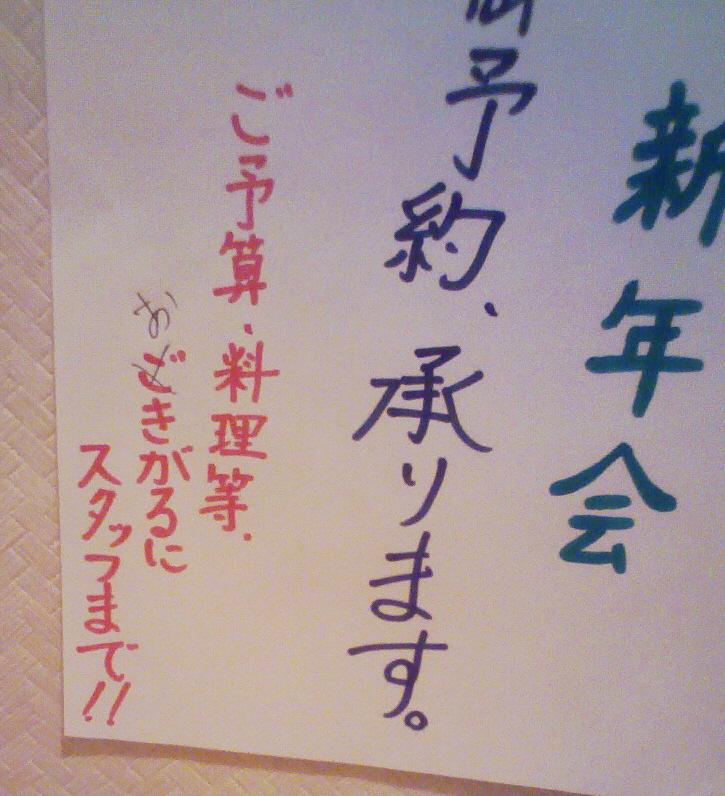 新年会
予約、承ります。
ご予算・料理等、
おごきがるに
スタッフまで!!